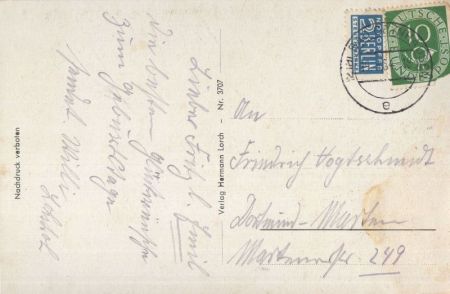 Lieber Fritz u. Emil
Die besten Glückwünsche
zum Geburtstage
sendet Willi
An
Friedrich Vogtschmidt
Dortmund-Marten
Martenerstr. 249
Nachdruck verboten
Verlag Hermann Lorch - Nr. 3707
NOTOPFER
2 BERLIN
STEUERMARKE
DEUTSCHE POST
e